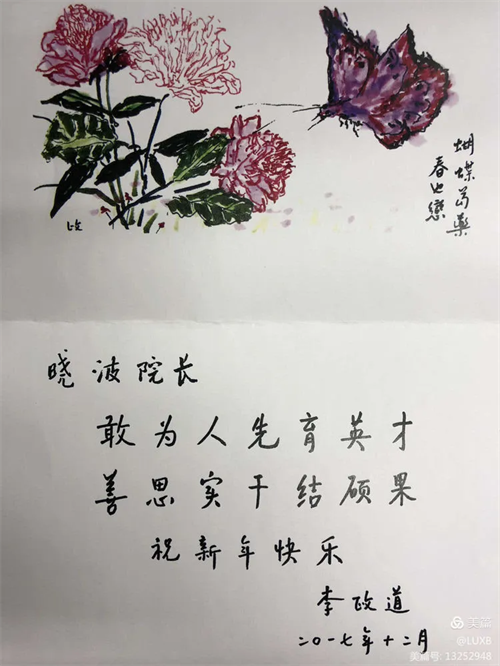 蝴蝶芍药
春也恋
晓波院长
敢为人先育英才
善思实干结硕果
祝新年快乐
李政道
二〇一七年十二月
美篇
@LUXB
美篇号: 13252948